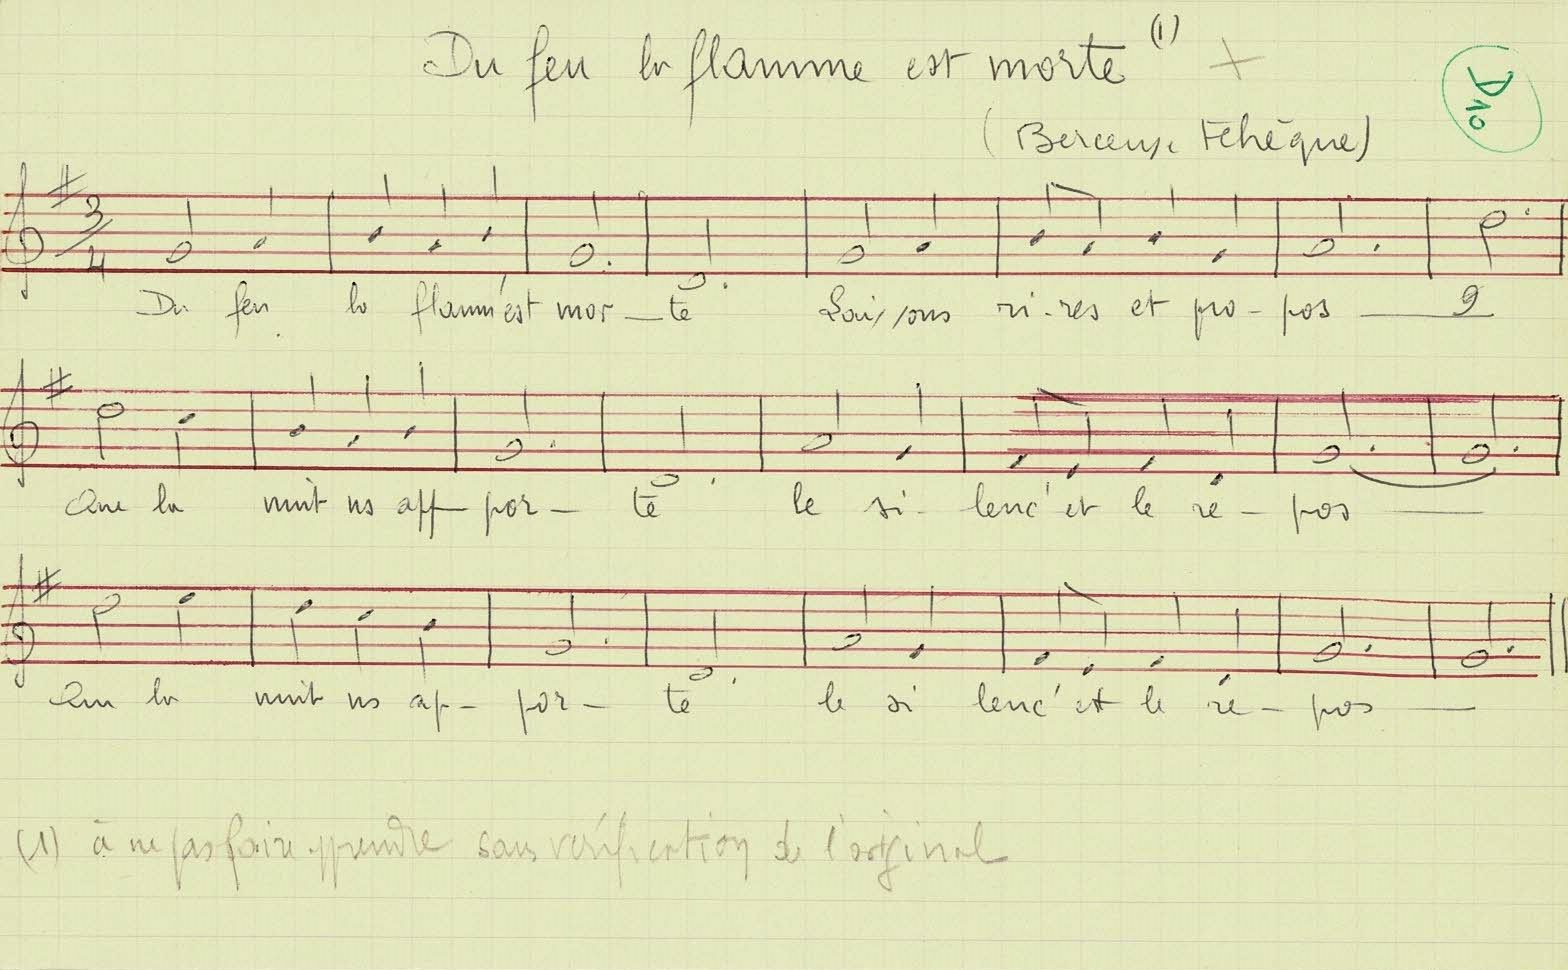 Du feu la flamme est morte (1) +
(Berceuse tchèque)
D10
3/4
Du feu la flamm'est mor—te Laissons ri-res et pro-pos —
Que la nuit ns app-por-te le si-lenc'et le re-pos —
Que la nuit ns ap-por-te le si lenc'et le re-pos —
(1) à ne pas faire apprendre sans vérification de l'original